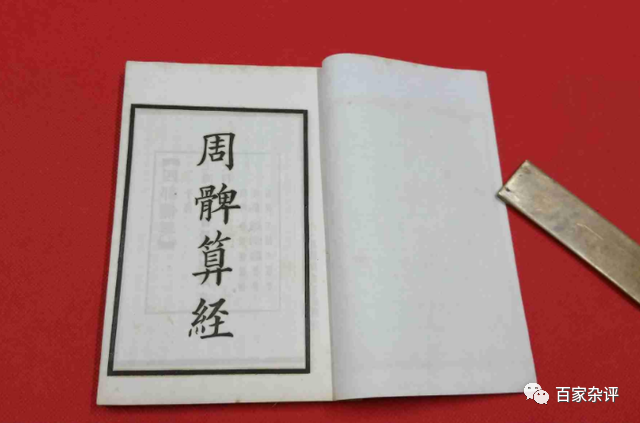 周髀算経
百家杂评